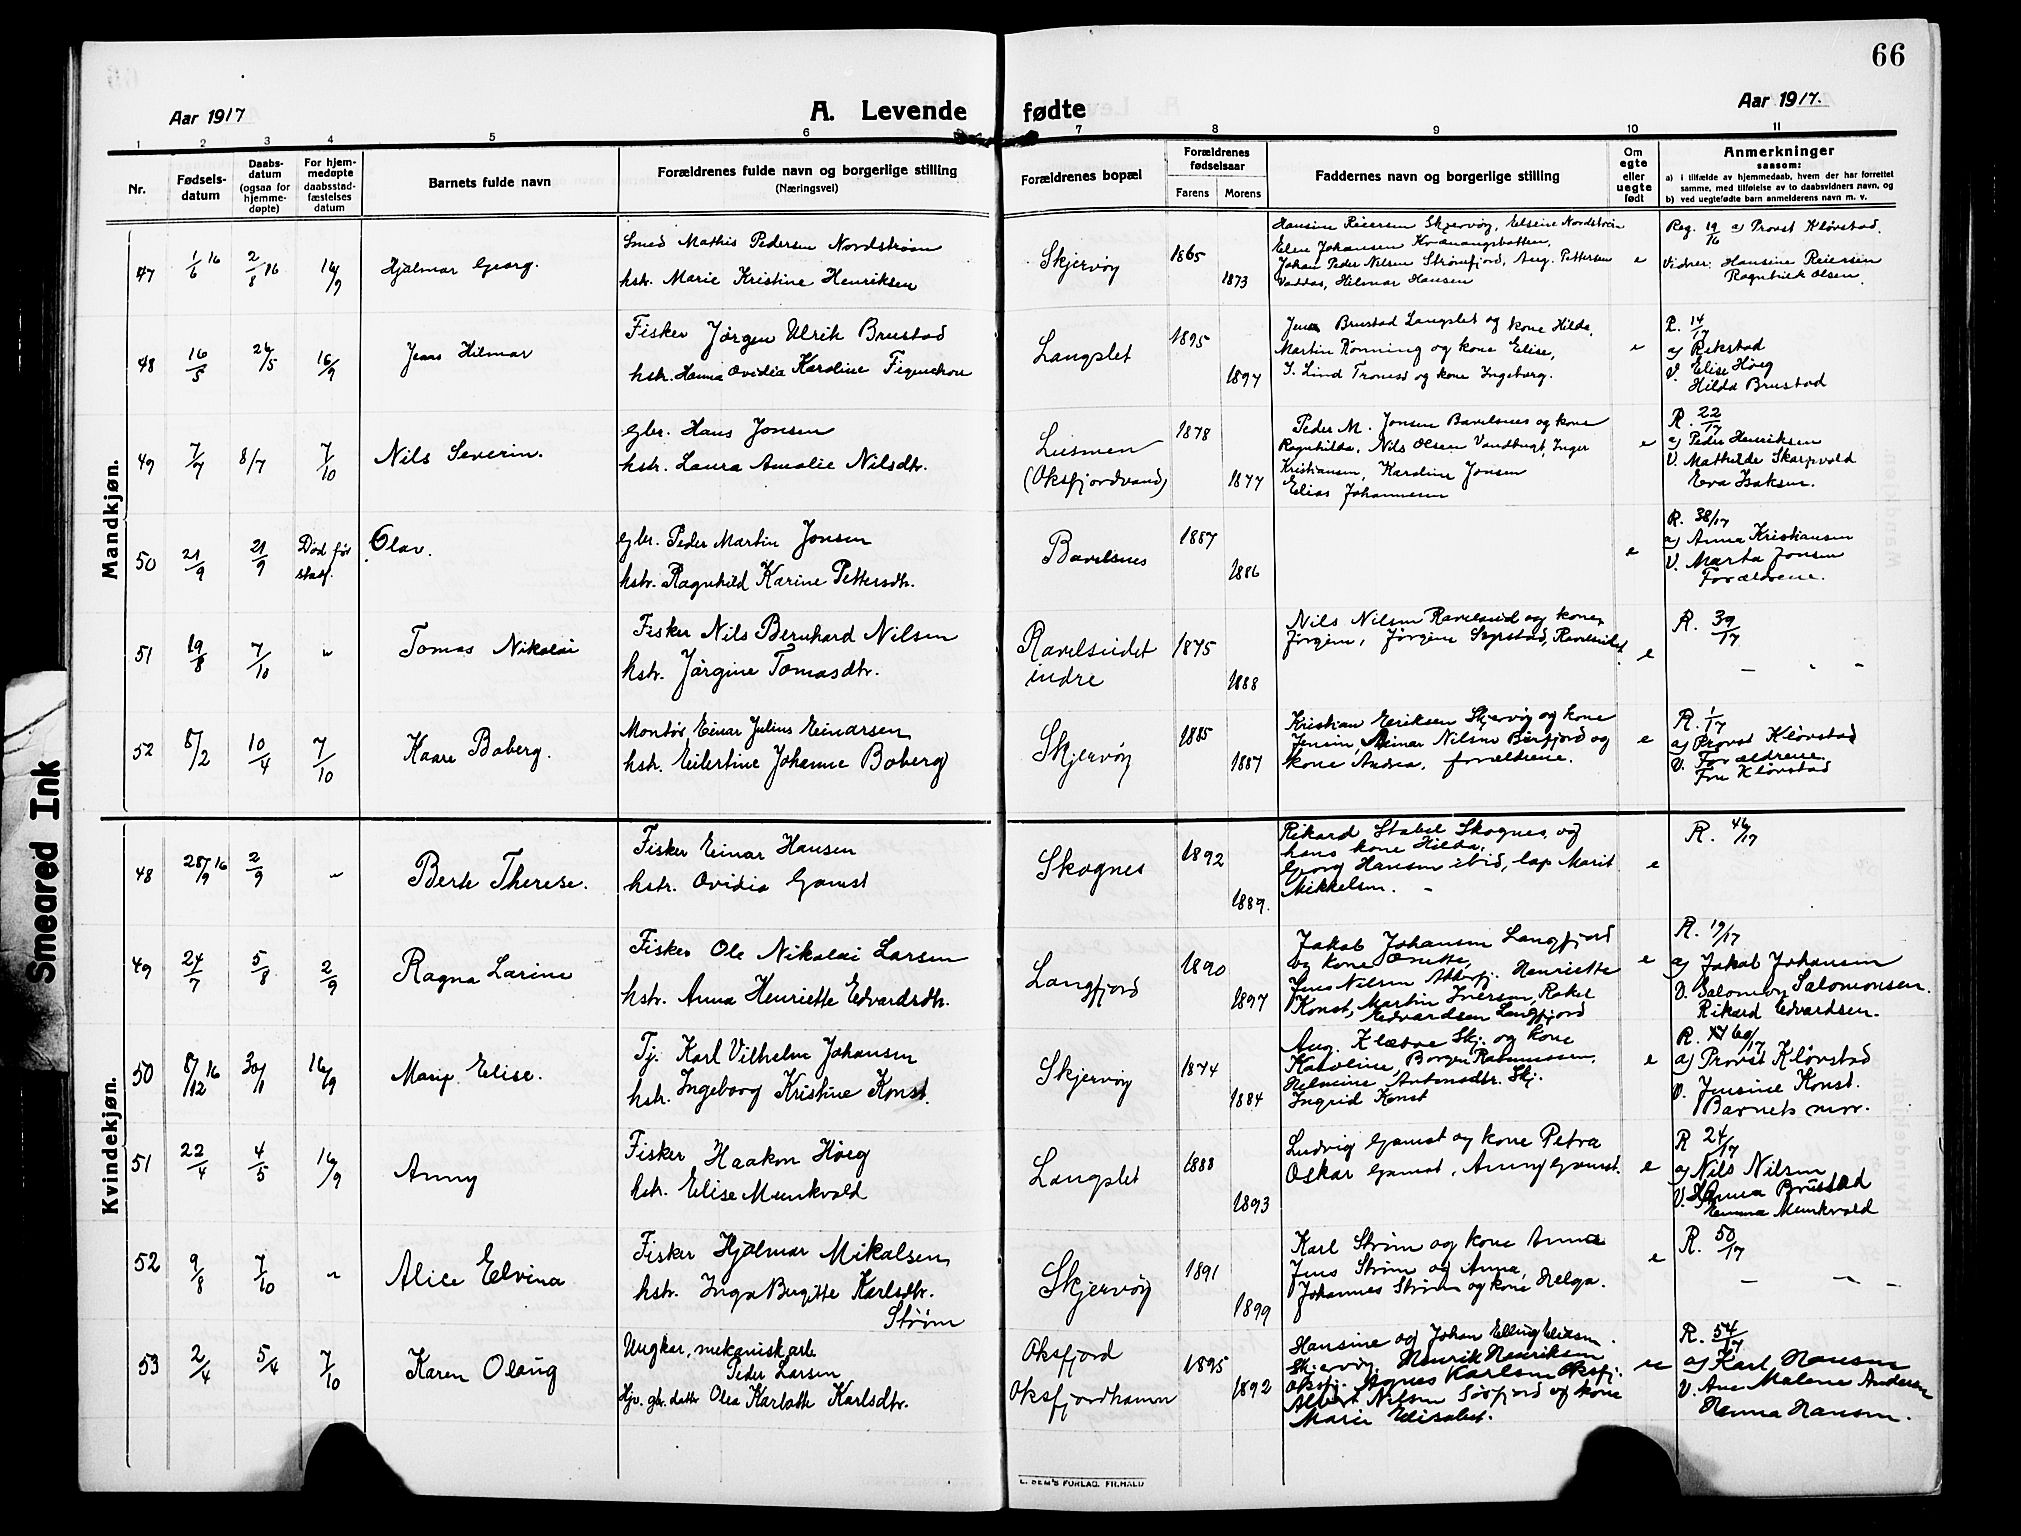 66
Aar 1917
A. Levende fødte
Aar 1917.
1 2 3 4 5 6 7 8 9 10 11
Nr.
Fødsels-
datum
Daabs-
datum
(ogsaa for
hjemme-
døpte)
For hjem-
medøpte
daabsstad-
fæstelses
datum
Barnets fulde navn
Forældrenes fulde navn og borgerlige stilling
(Næringsvei)
Forældrenes bopæl
Forældrenes
fødselsaar
Farens
Morens
Faddernes navn og borgerlige stilling
Om
egte
eller
uegte
født
Anmerkninger
saasom:
a) i tilfælde av hjemmedaab, hvem der har forrettet
samme, med tilføielse av to daabsvidners navn, og
b) ved uegtefødte barn anmelderens navn m. v.
Mandkjøn.
47 1/6 16 2/8 16 16/9 Hjalmar Georg.
Smed Mathis Pedersen Nordstrøm
hstr. Marie Kristine Henriksen
Skjervøy 1865 1873
Hansine Reiersen Skjervøy, Elseine Nordstrøm
Eline Johansen Kvænangsbotten,
Johan Peder Nilsen Strømfjord, Aug. Pettersen
Vaddas, Hilmar Hansen
e
Reg. 19/16 a) Provst Kløvstad.
Vidner: Hansine Reiersen
Ragnhild Olsen.
48 16/5 26/5 16/9 Jens Hilmar
Fisker Jørgen Ulrik Brustad
hstr. Hanna Ovidia Karoline
Langslet 1895 1897
Jens Brustad Langslet og kone Hilda,
Martin Rønning og kone Elise,
J. Lind Tromsø og kone Ingeborg.
e
R. 14/17
a) Rekstad
V. Elise Høeg
Hilda Brustad
49 7/7 8/7 7/10 Nils Severin.
gbr. Hans Jonsen
hstr. Laura Amalie Nilsdtr.
(Oksfjordvand) 1878 1877
Peder M. Jonsen Bavelsnes og kone
Ragnhilda, Nils Olsen Vandbugt, Inger
Kristiansen, Karoline Jonsen
Elias Johannesen
e
R. 22/17
a) Peder Henriksen
V. Mathilde Skarpvold
Eva Isaksen.
50 21/9 21/9 Død før
stadf.
Olav.
gbr. Peder Martin Jonsen
hstr. Ragnhild Karine Pettersdtr.
Bavelsnes 1887 1886
e
R. 38/17
a) Anna Kristiansen
V. Marta Jonsen
Forældrene.
51 19/8 7/10 " Tomas Nikolai
Fisker Nils Bernhard Nilsen
hstr. Jørgine Tomasdtr.
Ravelseidet
indre 1875 1888
Nils Nilsen Ravelseid og kone
Jørgine, Jørgine Ravelseidet
e
R. 39/17
52 8/2 10/4 7/10 Kaare Boberg.
Montør Einar Julius Einarsen
hstr. Eilertine Johanne Boberg
Skjervøy 1885 1887
Kristian Eriksen Skjervøy og kone
Jensine, Einar Nilsen og
kone Andrea, forældrene.
e
R. 1/17
a) Provst Kløvstad
V. Forældrene.
Fru Kløvstad
Kvindekjøn.
48 28/9 16 2/9 " Berte Therese.
Fisker Einar Hansen
hstr. Ovidia Gamst
Skognes 1892 1889.
Rikard Stabel Skognes og
hans kone Hilda,
Georg Hansen ibid, lap Marit
Mikkelsen.
e
R. 46/17
49 24/7 5/8 2/9 Ragna Larine
Fisker Ole Nikolai Larsen
hstr. Anna Henriette Edvardsdtr.
Langfjord 1890 1897
Jakob Johansen Langfjord
og kone Anette,
Jens Nilsen Henriette
Konst, Martin Iversen, Rakel
Edvardsen Langfjord
e
R. 19/17
a) Jakob Johansen
V. Salomon Salomonsen.
Rikard Edvardsen.
50 8/12 16 30/1 16/9 Marie Elise.
Tj. Karl Vilhelm Johansen
hstr. Ingeborg Kristine Konst.
Skjervøy 1874 1884
Aug. Skj. og kone
Karoline, Borger Rasmussen,
Helmine Antonsdtr. Skj.
Ingrid Konst
e
R. 60/17
a) Provst Kløvstad
V. Jensine Konst.
Barnets mor.
51 22/4 4/5 16/9 Anny
Fisker Haakon Høeg
hstr. Elise Munkvold
Langslet 1888 1893
Ludvig Gamst og kone Petra
Oskar Gamst, Anny Gamst.
e
R 24/17
a) Nils Nilsen
V. Hanna Brustad
Emma Munkvold
52 9/8 7/10 " Alice Elvina
Fisker Hjalmar Mikalsen
hstr. Inga Birgitte Karlsdtr.
Strøm
Skjervøy 1891 1899
Karl Strøm og kone Anna
Jens Strøm og Anna,
Johannes Strøm og kone Helga.
e
R. 50/17
53 2/4 5/4 7/10 Karen Olaug
Ungkar, mekanisk arb.
Peder Larsen
Hjv. gbr. datter Olea Karlotte Karlsdtr.
Oksfjord
Oksfjordhamn 1895 1892
Hansine og Johan Elling Eliasen.
Skjervøy, Henrik Henriksen
Oksfj. Agnes Karlsen Oksfj.
Albert Nilsen Sørfjord og kone
Marie Elisabet.
ue
R. 54/17
a) Karl Hansen
V. Ane Malene Andersen
Hanna Hansen.
E. SEM'S FORLAG. FR.HALD
Smeared Ink